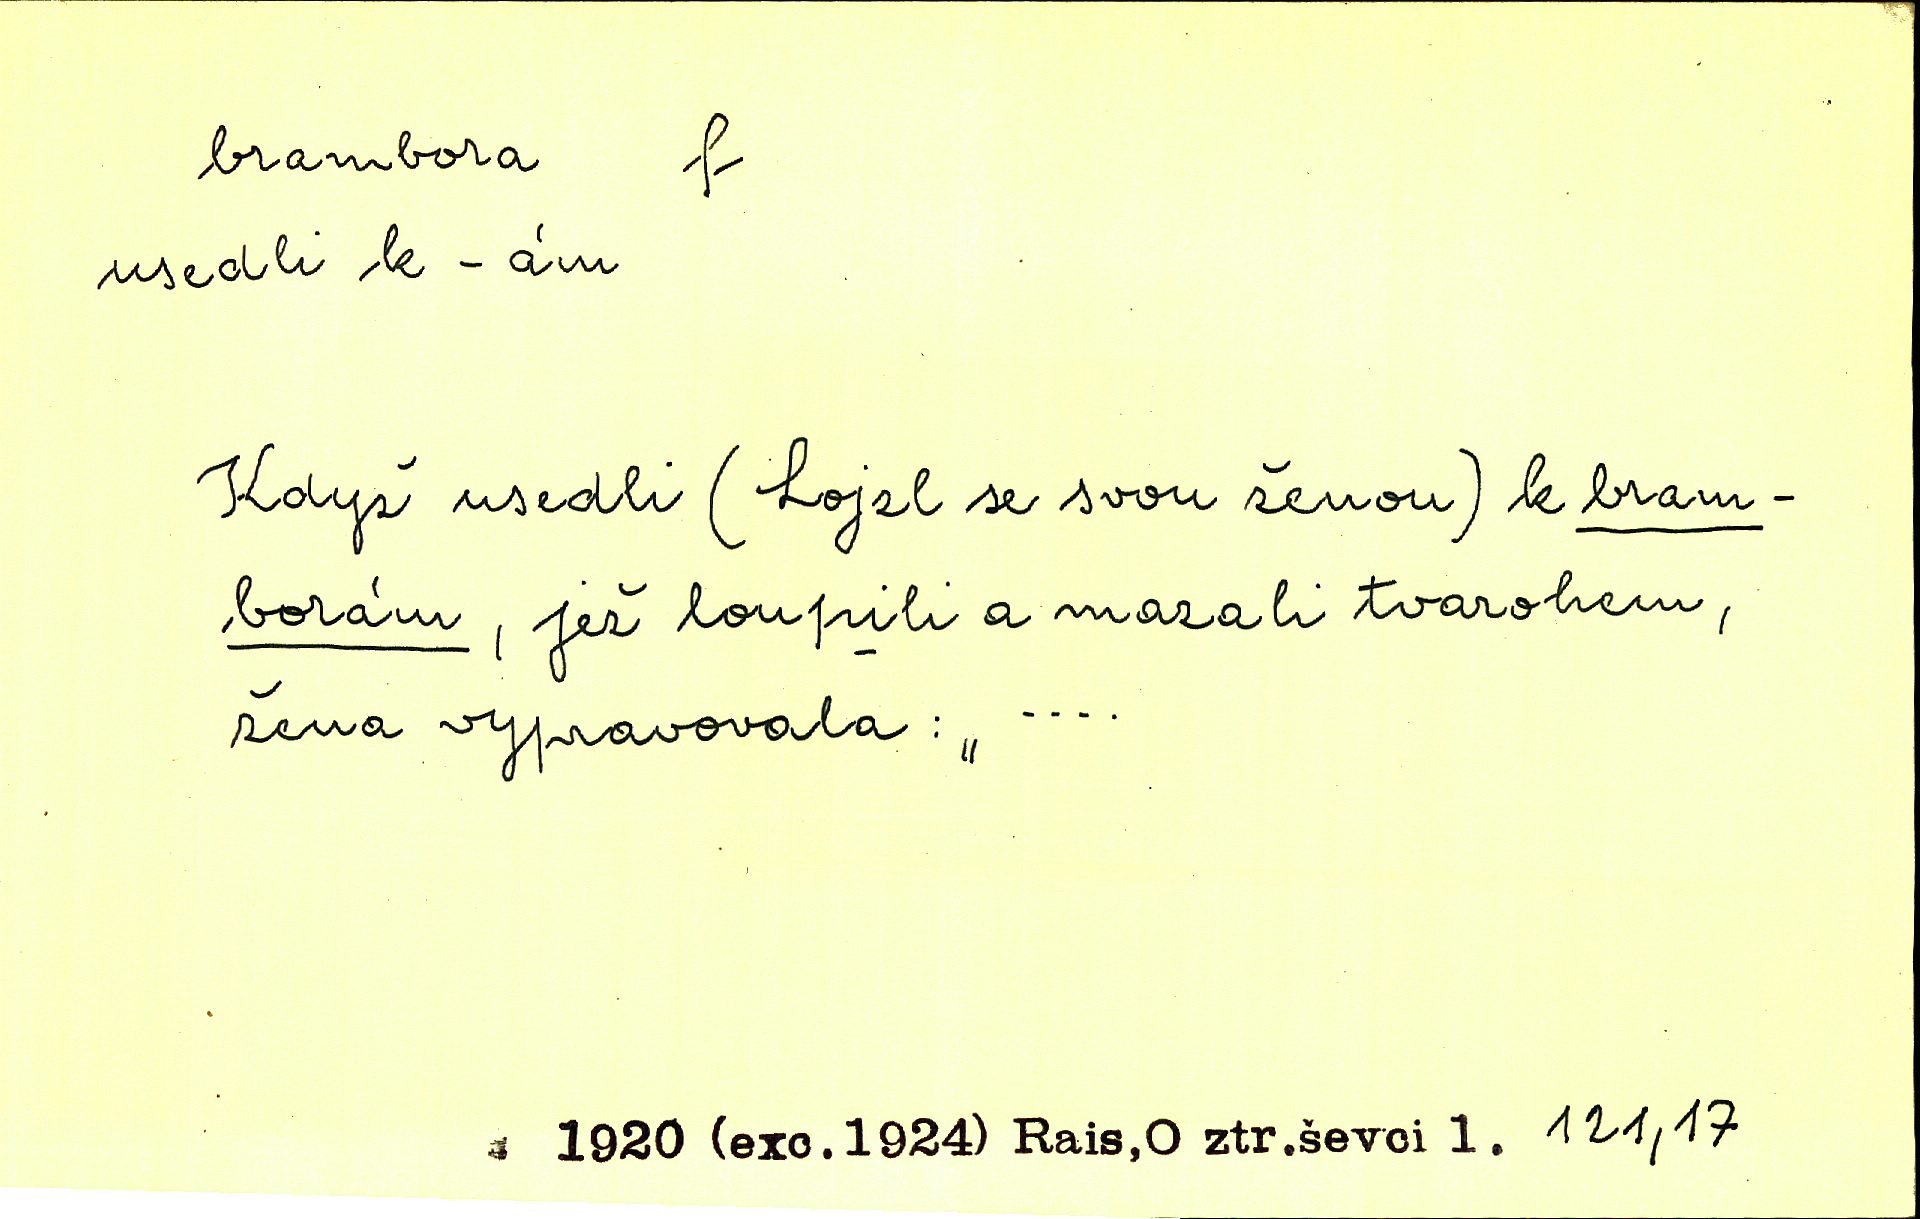 brambora f
usedli k -ám
Když usedli (Lojzl se svou ženou) k bram-
borám, jež loupili a mazali tvarohem,
žena vypravovala: „ ----.
1920 (exc.1924) Rais,O ztr.ševci 1. 121,17